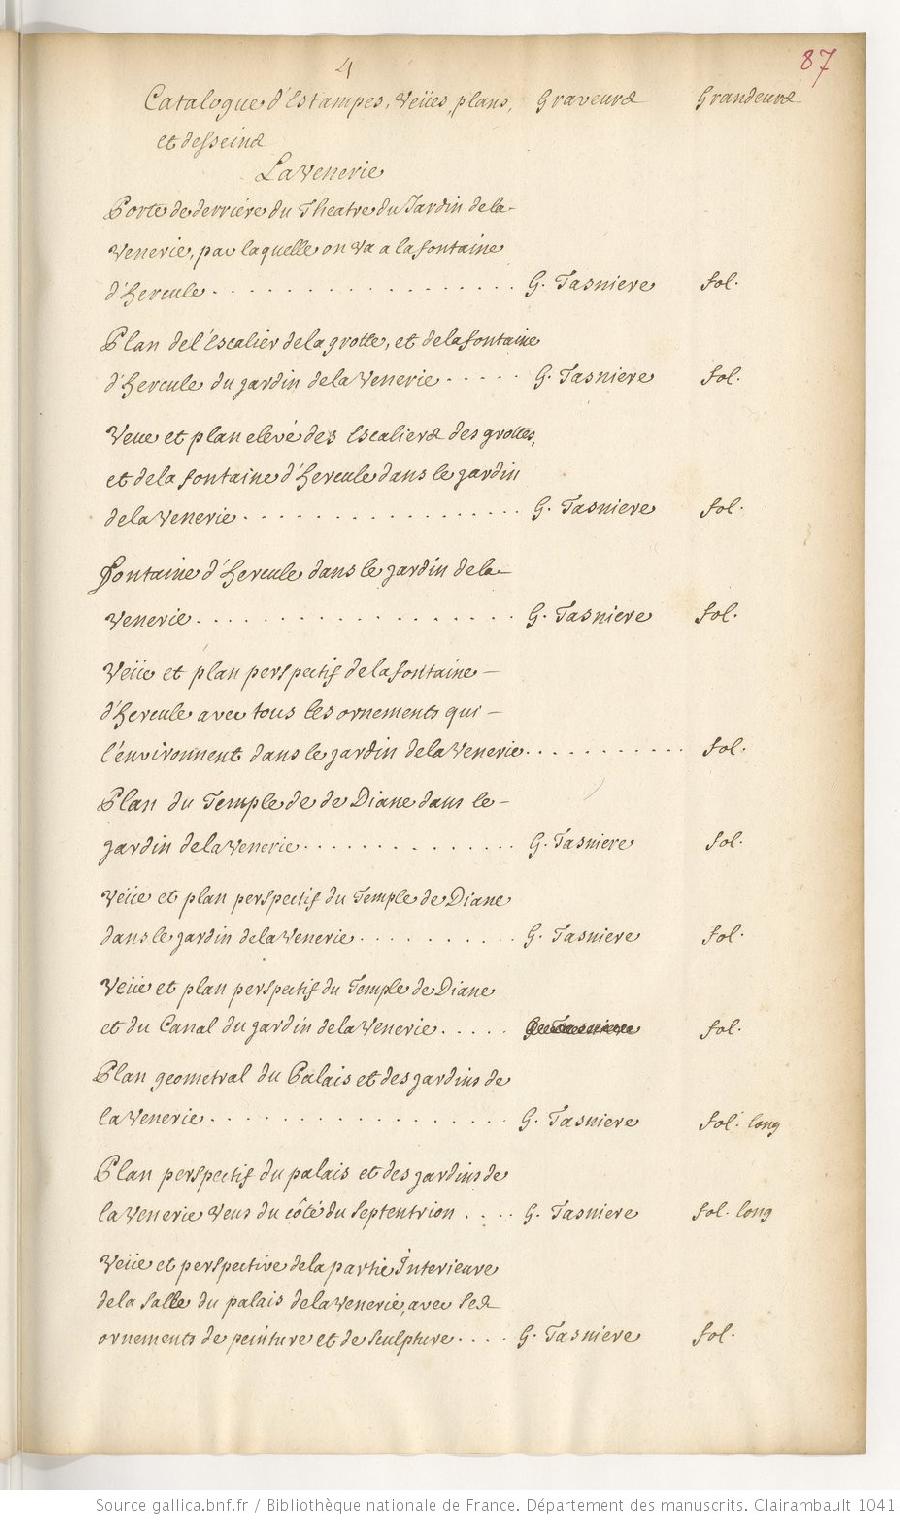 87
4
Catalogue d'Estampes, Veües, plans, Graveurs Grandeurs
et desseins
La Venerie
Porte de derriére du Theatre du Jardin de la
Venerie, par laquelle on va a la fontaine
d'Hercule . . . . . . . . . . . . . . . . G. Tasniere fol.
Plan de l'Escalier de la grotte, et de la fontaine
d'Hercule du jardin de la Venerie . . . . . G. Tasniere fol.
Veue et plan elevé des Escaliers des grottes,
et de la fontaine d'Hercule dans le jardin
de la Venerie . . . . . . . . . . . . . . . G. Tasniere fol.
Fontaine d'Hercule dans le jardin de la
Venerie . . . . . . . . . . . . . . . . G. Tasniere fol.
Veüe et plan perspectif de la fontaine
d'Hercule avec tous les ornements qui
l'environnent dans le jardin de la Venerie . . . . . . . . . . . fol.
Plan du Temple de de Diane dans le
jardin de la Venerie . . . . . . . . . . . . G. Tasniere fol.
Veüe et plan perspectif du Temple de Diane
dans le jardin de la Venerie . . . . . . . . . G. Tasniere fol.
Veüe et plan perspectif du Temple de Diane
et du Canal du jardin de la Venerie . . . . . fol.
Plan geometral du Palais et des jardins de
la Venerie . . . . . . . . . . . . . . . . G. Tasniere fol. long
Plan perspectif du palais et des jardins de
la Venerie Veus du côté du Septentrion . . . . G. Tasniere fol. long
Veüe et perspective de la partie Interieure
de la Salle du palais de la Venerie, avec ses
ornements de peinture et de sculpture . . . . G. Tasniere fol.
Source gallica.bnf.fr / Bibliothèque nationale de France. Département des manuscrits. Clairambault 1041